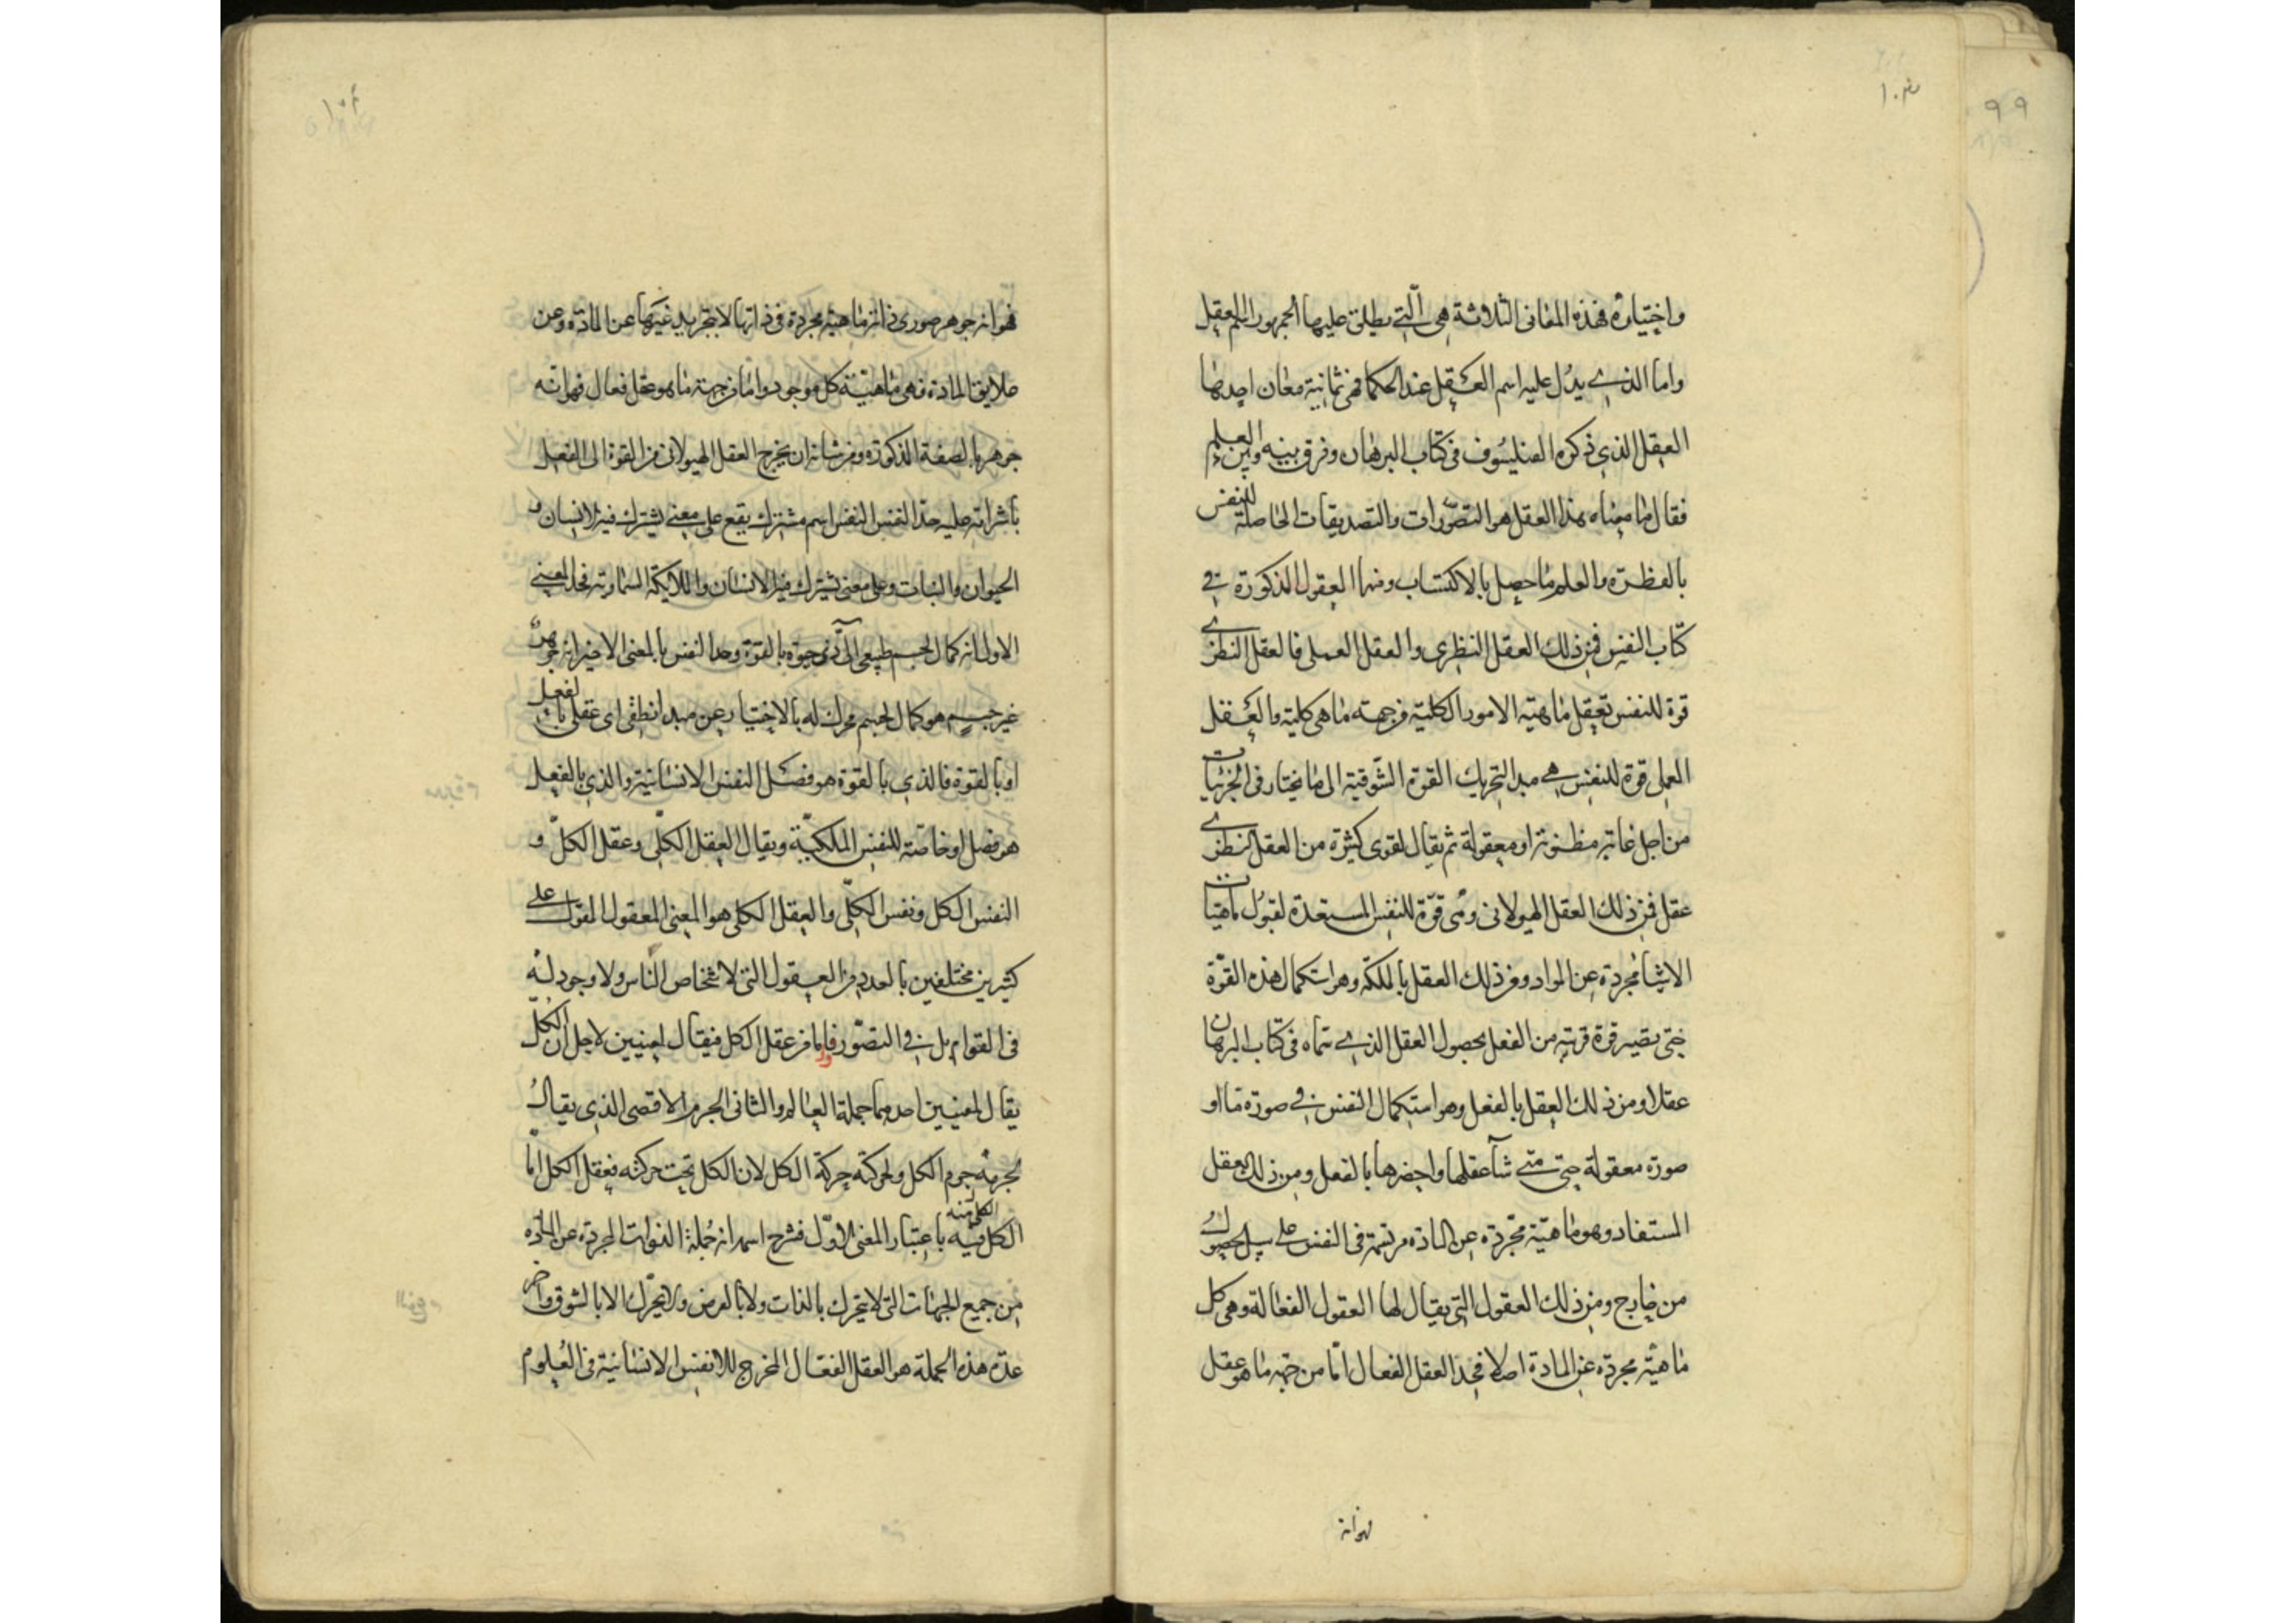 ١٠٣
٩٩
واختياره فهذه المعانى الثلاثة هى الّتى يطلق عليها الجمهور اسم العقل
واما الذى يدل عليه اسم العقل عند الحكما فهى ثمانية معان احدها
العقل الذى ذكره الفيلسوف فى كتاب البرهان وفرق بينه وبين العلم
فقال ما معناه هذا العقل هو التصورات والتصديقات الحاصلة للنفس
بالفطرة والعلم ما حصل بالاكتساب ومنها العقول المذكورة فى
كتاب النفس فمن ذلك العقل النظرى والعقل العملى فالعقل النظرى
قوة للنفس تعقل ماهية الامور الكلية من جهة ما هى كلية والعقل
العملى قوة للنفس هى مبدا لتحريك القوة الشوقية الى ما يختار فى الجزئيات
من اجل غاية مظنونة او معقولة ثم يقال لقوى كثيرة من العقل النظرى
عقل فمن ذلك العقل الهيولانى وهى قوة للنفس المستعدة لقبول ماهيات
الاشيا مجردة عن المواد ومن ذلك العقل بالملكة وهو استكمال هذه القوة
حتى تصير قوة قريبة من الفعل بحصول العقل الذى سماه فى كتاب البرهان
عقلا ومن ذلك العقل بالفعل وهو استكمال النفس فى صورة ما او
صورة معقولة حتى متى شآ عقلها واحضرها بالفعل ومن ذلك العقل
المستفاد وهو ماهية مجردة عن المادة مرتسمة فى النفس على سبيل الحصول
من خارج ومن ذلك العقول التى يقال لها العقول الفعالة وهى كل
ماهية مجردة عن المادة اصلا فحد العقل الفعال امّا من جهة ما هو عقل
فهوانه
١٠٤
فهو انه جوهر صورى ذاته ماهية مجردة فى ذاتها لا بتجريد غيرها عن المادة وعن
علايق المادة فهى ماهية كل موجود واما من جهة ما هو عقل فعال فهو انه
جوهر بالصفة المذكورة ومن شانه ان يخرج العقل الهيولانى من القوة الى الفعل
باشراقه عليه حد النفس النفس اسم مشترك يقع على معنى يشترك فيه الانسان و
الحيوان والنبات وعلى معنى يشترك فيه الانسان والملايكة السماوية فحد المعنى
الاول انه كمال لجسم طبيعى آلى ذى حيوة بالقوة وحد النفس بالمعنى الاخر انه جوهر
غير جسم هو كمال لجسم محرك له بالاختيار عن مبدا نطقى اى عقلى بالفعل
او بالقوة فالذى بالقوة هو فصل النفس الانسانية والذى بالفعل
هو فصل او خاصة للنفس الملكية ويقال العقل الكلى وعقل الكل و
النفس الكل ونفس الكلّى والعقل الكلى هو المعنى المعقول المقول على
كثيرين مختلفين بالعدد من العقول التى لاشخاص الناس ولا وجود له
فى القوام بل فى التصور فاما عقل الكل فيقال لمعنيين لاجل ان الكل
يقال لمعنيين احدهما جملة العالم والثانى الجرم الاقصى الذى يقال
لجرمه جرم الكل ولحركته حركة الكل لان الكل تحت حركته فعقل الكل امّا
الكل فيه باعتبار المعنى الاوّل فشرح اسمه انه جملة الذوات المجردة عن المادة
من جميع الجهات التى لا تتحرك بالذات ولا بالعرض ولا تحرّك الا بالشوق واخر
عدة هذه الجملة هو العقل الفعال المخرج للانفس الانسانية فى العلوم